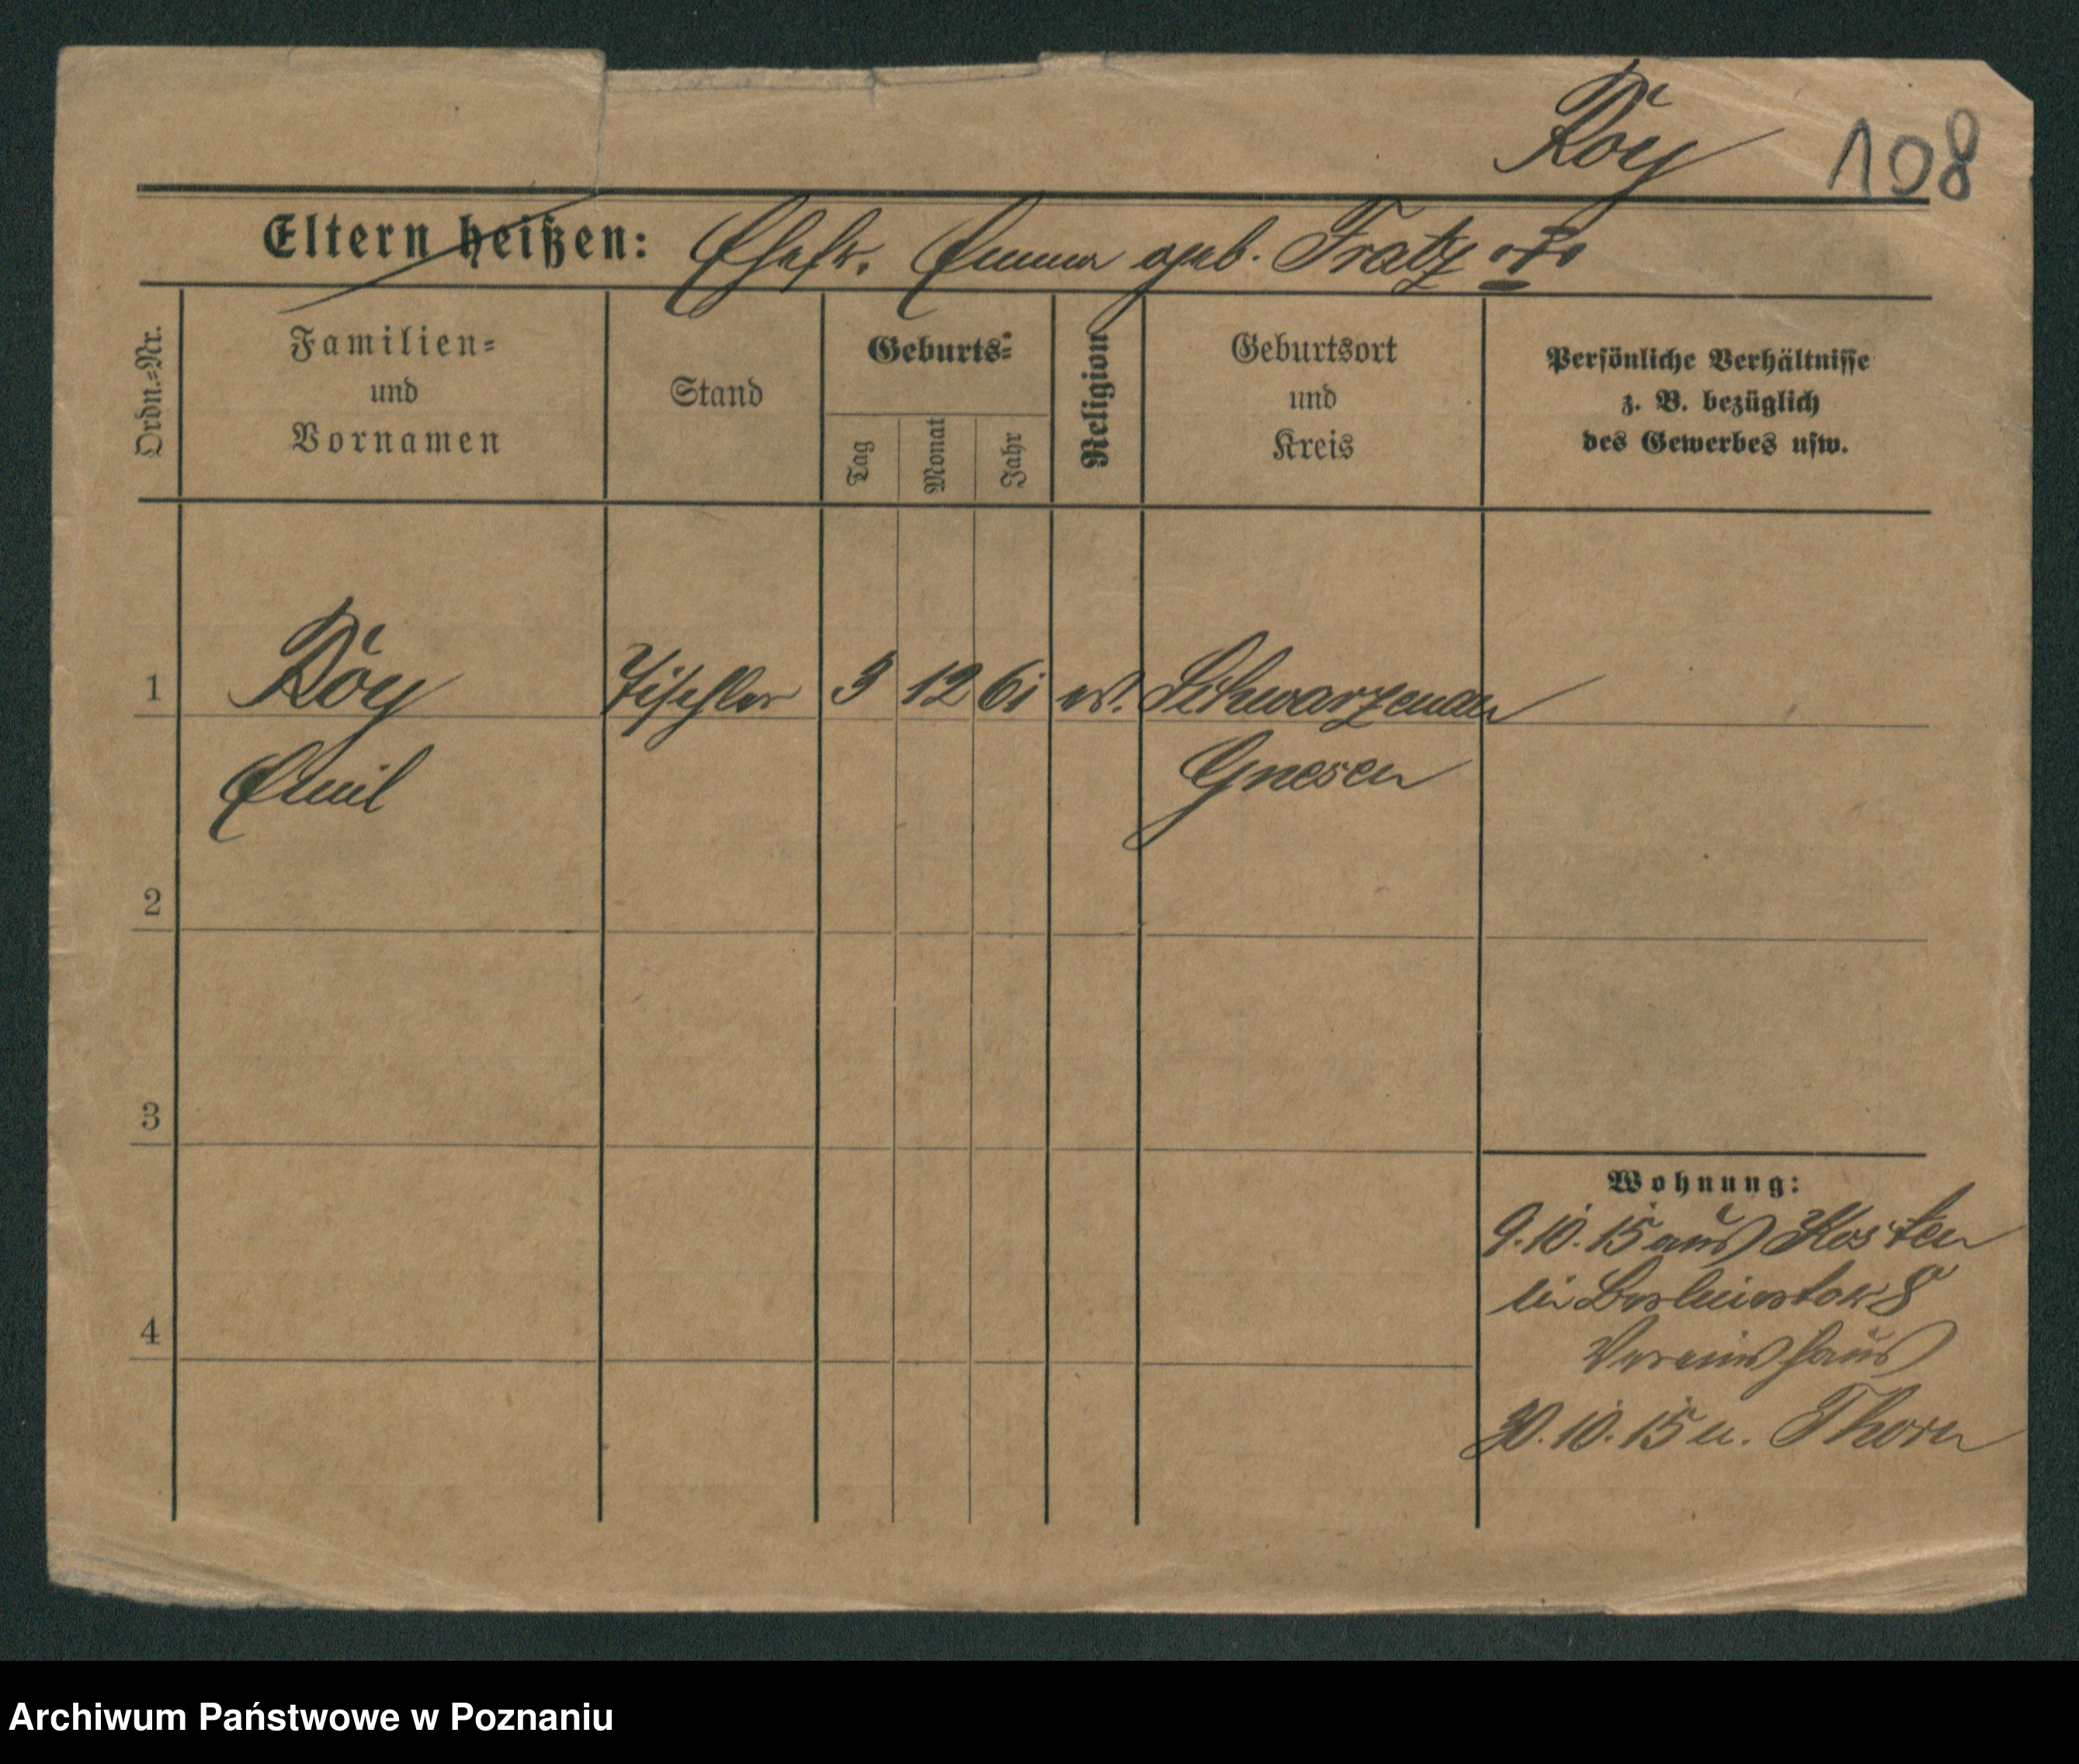 Roy 108
Eltern heißen: Ehefr. Emma geb. Fratz
Ordn.-Nr.
Familien-
und
Vornamen
Stand
Geburts-
Tag
Monat
Jahr
Religion
Geburtsort
und
Kreis
Persönliche Verhältnisse
z. B. bezüglich
des Gewerbes usw.
1 Röy Tischler 3 12 61 ev. Schwarzenau
Emil Gnesen
2
3
4
Wohnung:
9.10.15 aus Kosten
8
Vereinshaus
30.10.15 n. Thorn
Archiwum Państwowe w Poznaniu